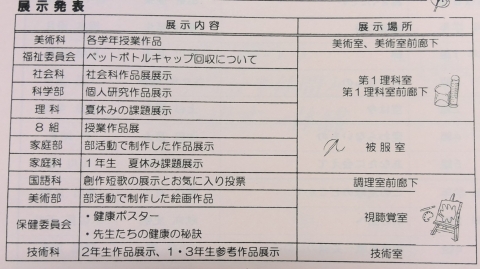 展示発表
展示内容 展示場所
美術科 各学年授業作品 美術室、美術室前廊下
福祉委員会 ペットボトルキャップ回収について
社会科 社会科作品展展示
科学部 個人研究作品展示
理科 夏休みの課題展示
第1理科室
第1理科室前廊下
8組 授業作品展
家庭部 部活動で制作した作品展示
家庭科 1年生 夏休み課題展示
被服室
国語科 創作短歌の展示とお気に入り投票 調理室前廊下
美術部 部活動で制作した絵画作品
保健委員会 ・健康ポスター
・先生たちの健康の秘訣
視聴覚室
技術科 2年生作品展示、1・3年生参考作品展示 技術室